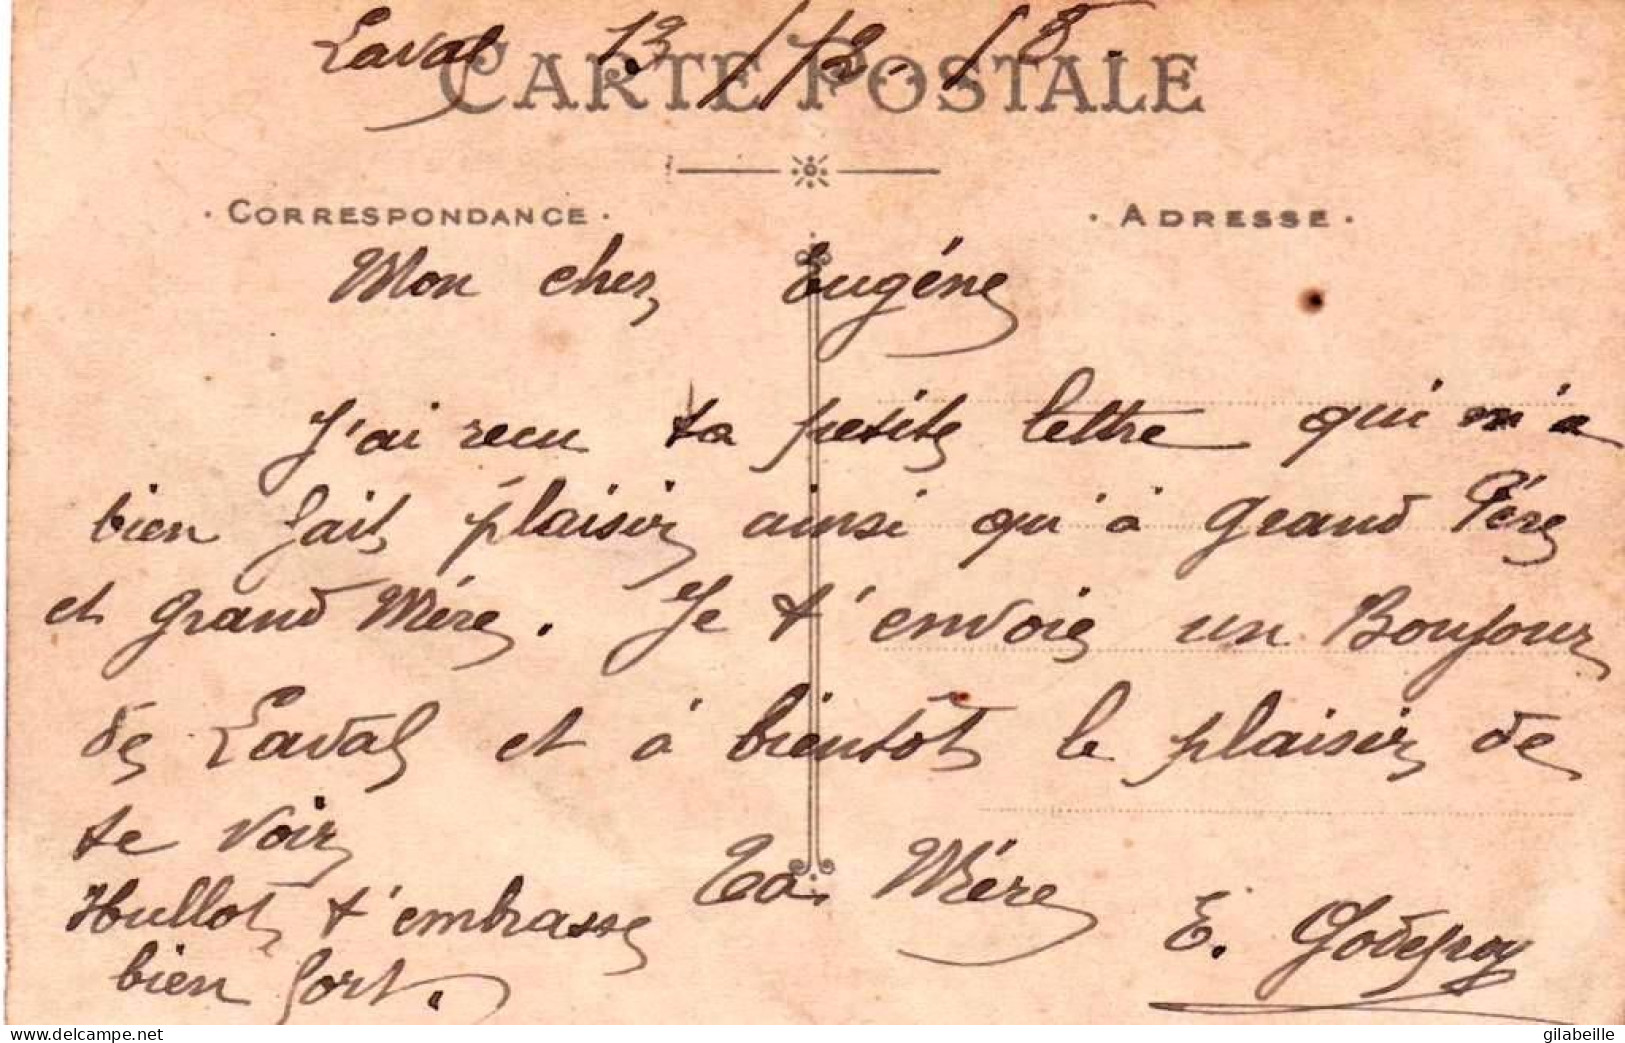 Laval 13/12-18.
CARTE POSTALE
· CORRESPONDANCE · · ADRESSE ·
Mon cher Eugéne
J'ai recu ta petite lettre qui m'a
bien fait plaisir ainsi qu'à grand Pére
et grand Mére. Je t'envoie un Bonjour
de Laval et à bientôt le plaisir de
te voir
Ta Mére
Hullot t'embrasse
E. Godefroy
bien fort.
gilabeille
www.delcampe.net